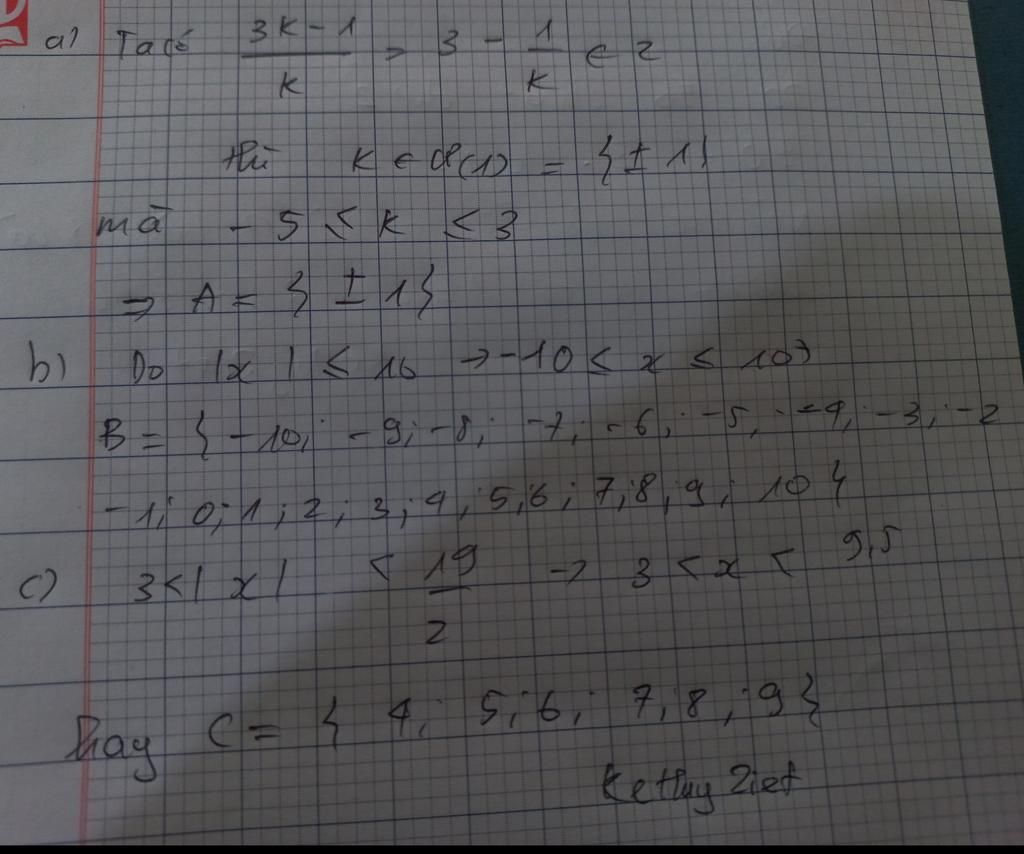 a) Ta có 3k - 1 / k = 3 - 1/k ∈ Z
thì k ∈ Ư(1) = {±1}
mà -5 ≤ k ≤ 3
⇒ A = {±1}
b) Do |x| ≤ 10 → -10 ≤ x ≤ 10
B = {-10; -9; -8; -7; -6; -5; -4; -3; -2
-1; 0; 1; 2; 3; 4; 5; 6; 7; 8; 9; 10}
c) 3 < |x| < 19/2 → 3 < x < 9,5
Hay C = {4; 5; 6; 7; 8; 9}